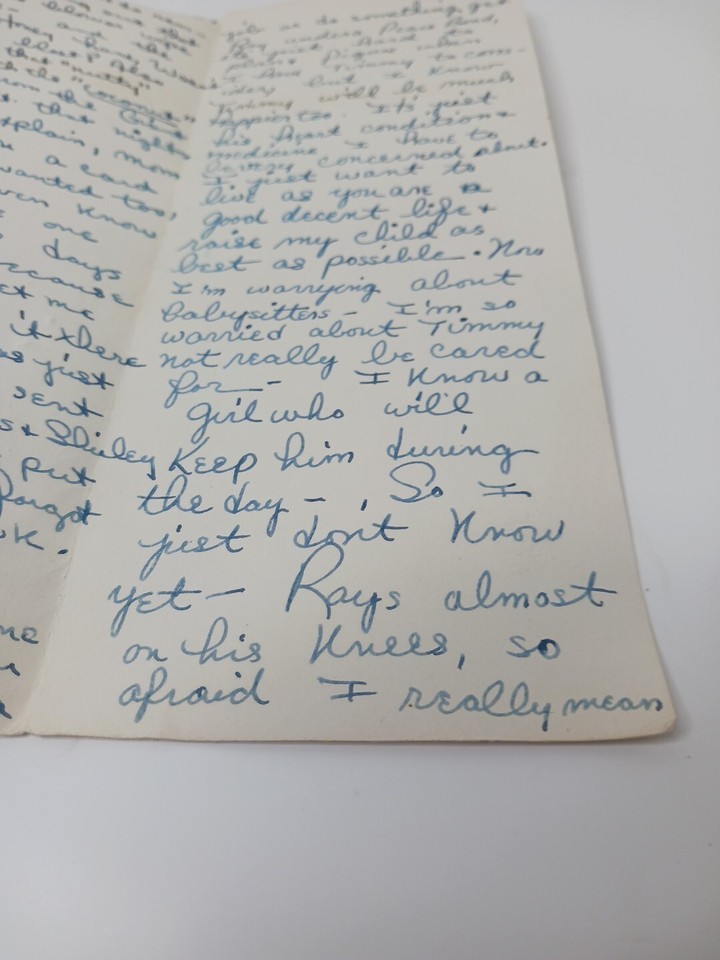 blower
Honey and the
that "nutty"
the "Coconut"
from the
that night
explain, mom
a card
wanted too,
even know
one
days
because
let me
it there
as just
sent
& Shirley
put
forgot
OK.
me
or do something, get
Ray under a Peace Bond,
just hard to
plans
& Timmy to cons-
ider, but I know
Timmy will be much
happier too. It's just
his heart condition &
medicine I have to
be very concerned about.
I just want to
live as you are a
good decent life &
raise my child as
best as possible. Now
I'm worrying about
babysitters - I'm so
worried about Timmy
not really be cared
for - I know a
girl who will
keep him during
the day - , So I
just don't know
yet - Rays almost
on his knees, so
afraid I really mean